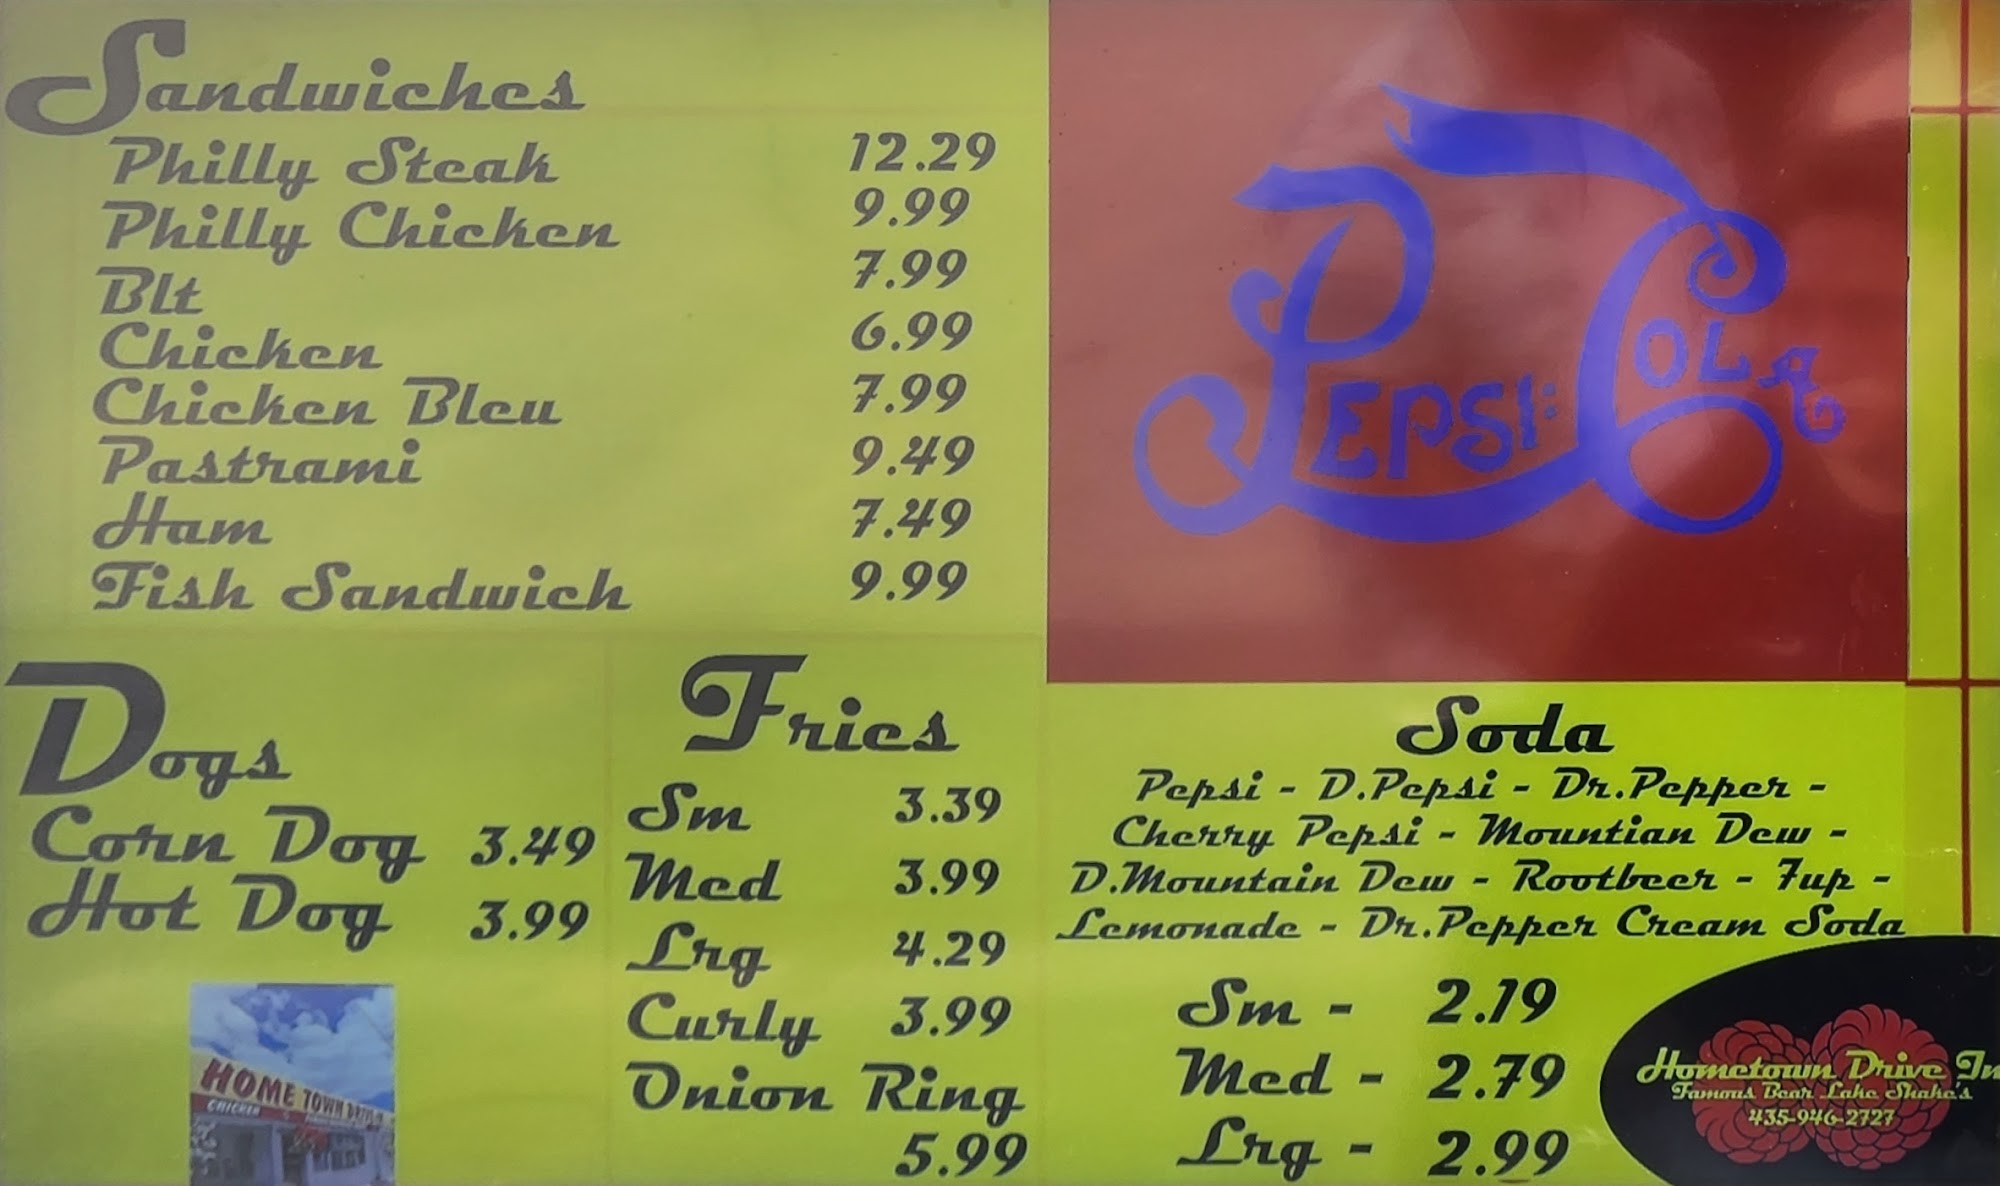 Sandwiches
Philly Steak 12.29
Philly Chicken 9.99
Blt 7.99
Chicken 6.99
Chicken Bleu 7.99
Pastrami 9.49
Ham 7.49
Fish Sandwich 9.99
Dogs
Corn Dog 3.49
Hot Dog 3.99
HOME TOWN DRIVE
CHICKEN
Fries
Sm 3.39
Med 3.99
Lrg 4.29
Curly 3.99
Onion Ring
5.99
PEPSI:COLA
Soda
Pepsi - D.Pepsi - Dr.Pepper -
Cherry Pepsi - Mountian Dew -
D.Mountain Dew - Rootbeer - 7up -
Lemonade - Dr.Pepper Cream Soda
Sm - 2.19
Med - 2.79
Lrg - 2.99
Hometown Drive In
Famous Bear Lake Shake's
435-946-2727